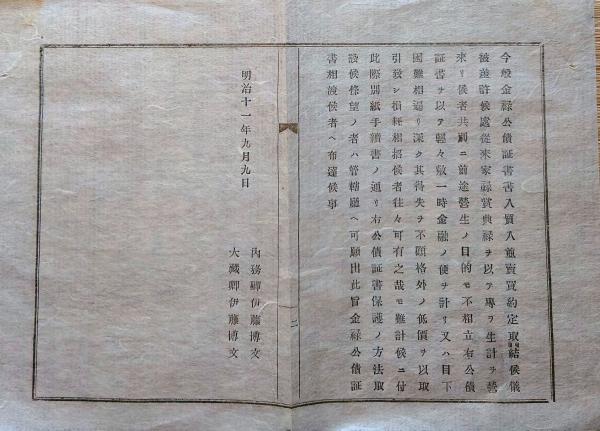 今般金禄公債証書書入質入並賣買約定取結候儀
被差許候處從來家禄賞典禄ヲ以テ專ラ生計ヲ營
來リ候者共剩ニ前途營生ノ目的モ不相立右公債
証書ヲ以テ輕々敷一時金融ノ便ヲ計リ又ハ目下
困難相迫リ深ク其得失ヲ不顧格外ノ低價ヲ以取
引致シ損耗相招候者往々可有之哉モ難計候ニ付
此際別紙手續書ノ通リ右公債証書保護ノ方法取
設候條望ノ者ハ管轄廳ヘ可願出此旨金禄公債証
書相渡候者ヘ布達候事
明治十一年九月九日
内務卿伊藤博文
大藏卿伊藤博文
二